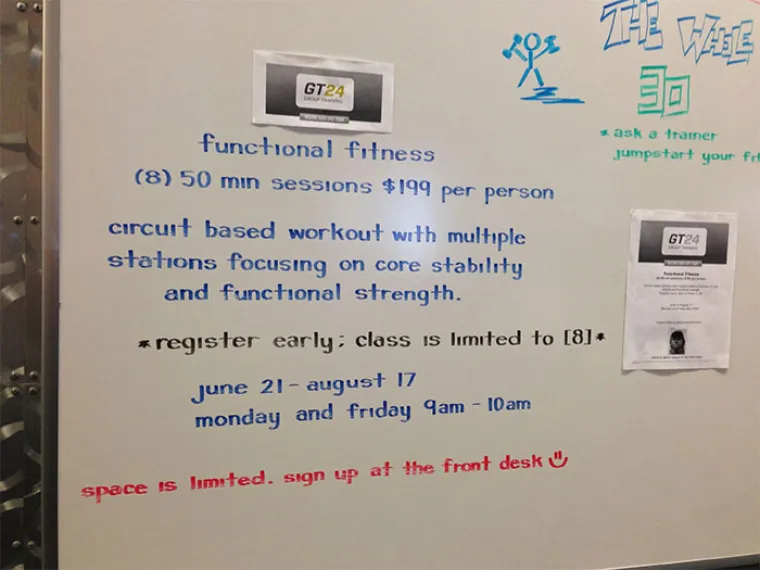 GT24
GROUP TRAINING
functional fitness
(8) 50 min sessions $199 per person
circuit based workout with multiple
stations focusing on core stability
and functional strength.
*register early; class is limited to [8]*
june 21 - august 17
monday and friday 9am - 10am
space is limited. sign up at the front desk
THE WHOLE
30
*ask a trainer
jumpstart your fit
GT24
GROUP TRAINING
Functional Fitness